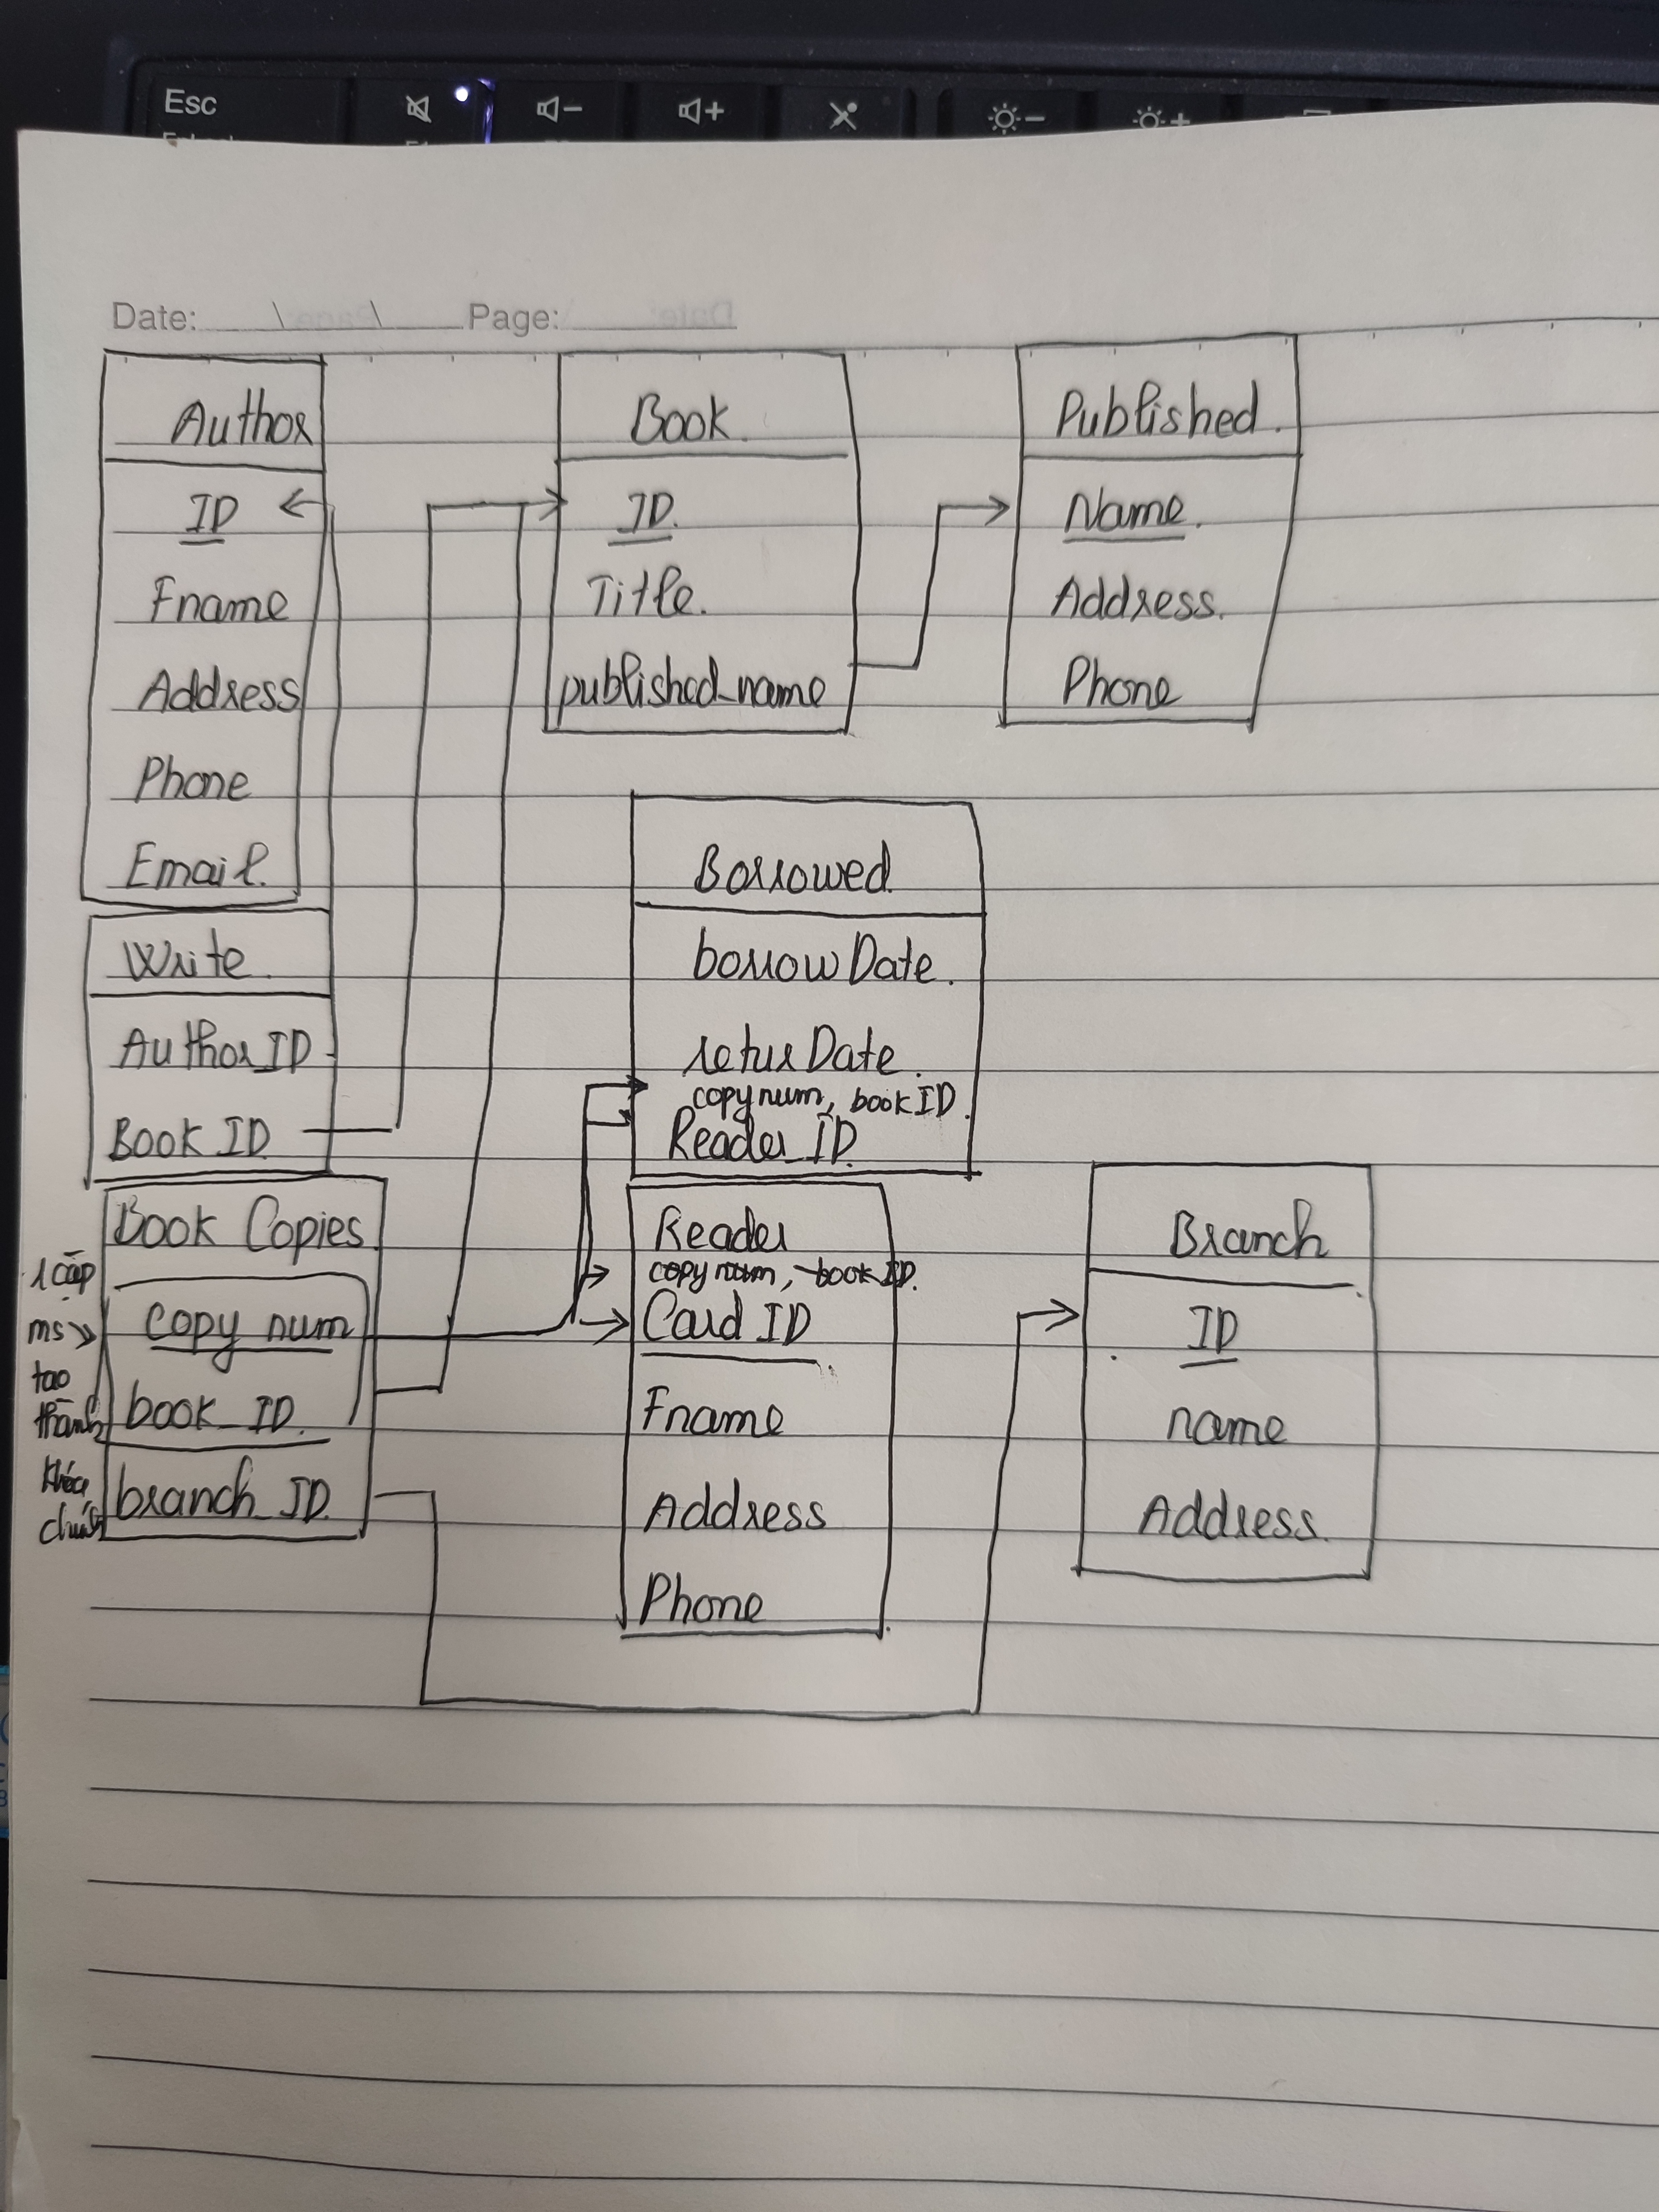 Esc
Date: \ \ Page:
Author
ID
Fname
Address
Phone
Email.
Book.
ID.
Title.
published_name
Published.
Name.
Address.
Phone
Write.
Author_ID
Book ID
Borrowed.
borrow Date.
retur Date.
copy num, book ID.
Reader_ID.
Book Copies.
copy num
book_ID.
branch_ID
1 cặp
ms
tạo
thành
khóa
chính
Reader
copy num, book ID.
Card ID
Fname
Address
Phone
Branch
ID
name
Address.